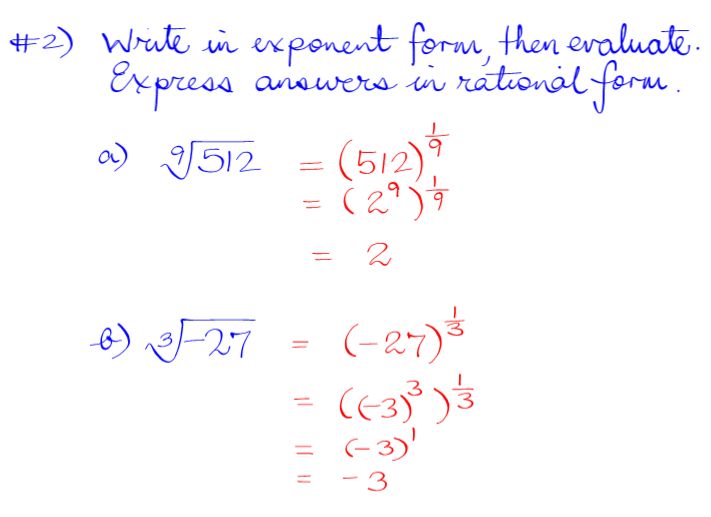 #2) Write in exponent form, then evaluate.
Express answers in rational form.
a) ⁹√512 = (512)^(1/9)
= (2⁹)^(1/9)
= 2
b) ³√-27 = (-27)^(1/3)
= ((-3)³)^(1/3)
= (-3)¹
= -3